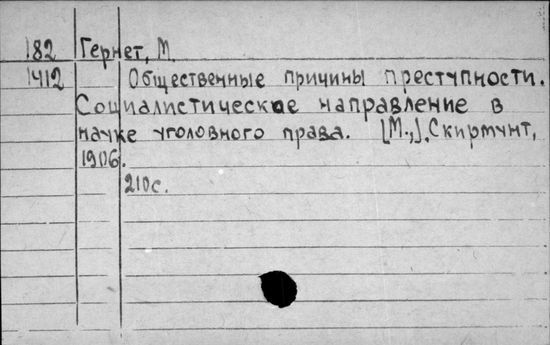 182 Гернет, М.
1412 Общественные причины преступности.
Социалистическое направление в
науке уголовного права. [М.,], Скирмунт,
1906.
210с.